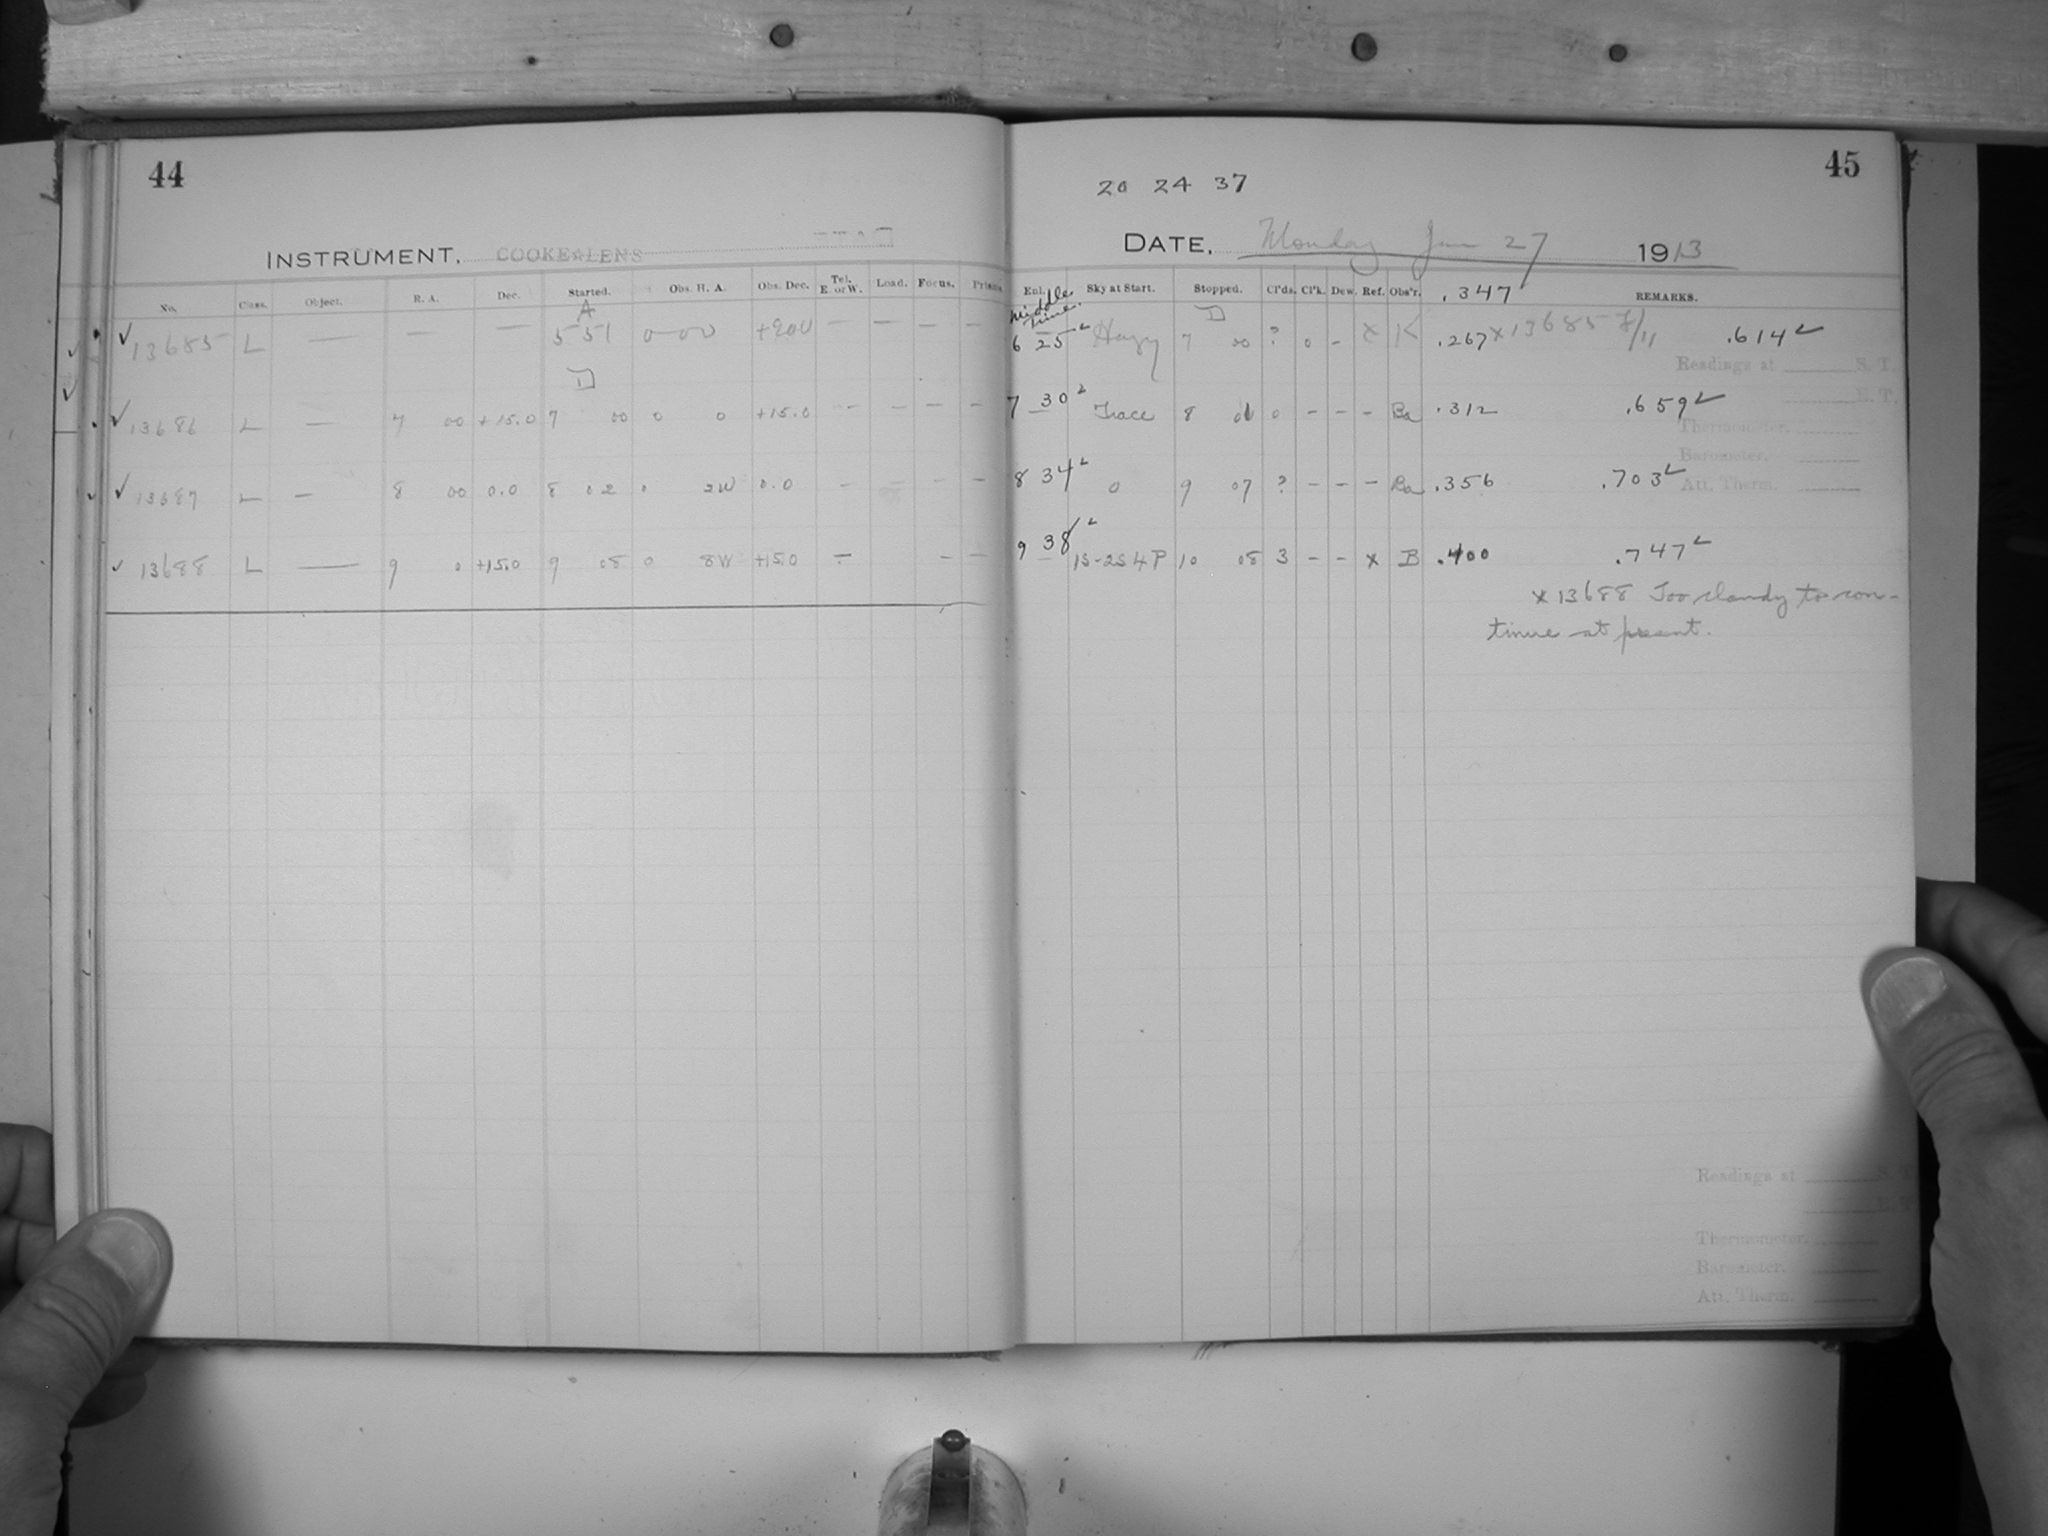 44
INSTRUMENT. COOKE LENS
No. Class. Object. R. A. Dec. Started. Obs. H. A. Obs. Dec. Tel. E or W. Load. Focus. Prisms
A
✓ 13685 L — — — 5 51 0 00 — — — —
D
✓ 13686 L — 7 00 +15.0 7 00 0 0 +15.0 -- — — —
✓ 13687 L — 8 00 0.0 8 02 0 2W 0.0 - - — —
✓ 13688 L — 9 0 +15.0 9 05 0 8W +15.0 — - —
45
20 24 37
DATE, Monday Jan 27 1913
Enl. Sky at Start. Stopped. Cl'ds. Cl'k. Dew. Ref. Obs'r. .347 REMARKS.
Middle Time.
D
6 25 Hazy 7 00 ? 0 - x K .267 x 13685 F/11 .614
Readings at S. T.
7 30 Trace 8 01 0 - - - Ba .312 .659
E. T.
Thermometer.
Barometer.
8 34 0 9 07 ? - - - Ba .356 .703
Att. Therm.
9 38 1S-2S4P 10 08 3 - - x B .400 .747
x 13688 Too cloudy to con-
tinue at present.
Readings at S. T.
E. T.
Thermometer.
Barometer.
Att. Therm.